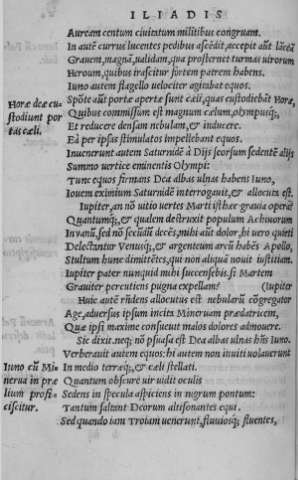 ILIADIS
Auream centum ciuitatum militibus congruam.
In autē currus lucentes pedibus ascēdit, accepit aūt lācea
Grauem, magnā, ualidam, qua prosternet turmas uirorum
Heroum, quibus irascitur fortem patrem habens.
Iuno autem flagello uelociter agitabat equos.
Spōte aūt portæ apertæ sunt cæli, quas custodiebāt Horæ,
Horæ deæ cu-
stodiunt por
tas cæli.
Quibus commissum est magnum cælum, olympusq;,
Et reducere densam nebulam, & inducere.
Eà per ipsas stimulatos impellebant equos.
Inuenerunt autem Saturnidē à Dijs seorsum sedentē alijs
Summo uertice eminentis Olympi:
Tunc equos firmans Dea albas ulnas habens Iuno,
Iouem eximium Saturnidē interrogauit, & allocuta est.
Iupiter, an nō utiq uertes Marti isthæc grauia opera?
Quantumq;, & qualem destruxit populum Achiuorum
Inuanū, sed nō secūdū decēs, mihi aūt dolor, hi uero quieti
Delectantur Venusq;, & argenteum arcū habēs Apollo,
Stultum hunc dimittētes, qui non aliquā nouit iustitiam.
Iupiter pater nunquid mihi succensebis, si Martem
Grauiter percutiens pugna expellam? (Iupiter
Huic autē rñdens allocutus est nebularū cōgregator
Age, aduersus ipsum incita Mineruam prædatricem,
Quæ ipsi maxime consueuit malos dolores admouere.
Sic dixit. neq; nō psuasa est Dea albas ulnas hñs Iuno.
Verberauit autem equos: hi autem non inuiti uolauerunt
Iuno cū Mi-
nerua in præ
lium profi-
ciscitur.
In medio terræq;, & cæli stellati.
Quantum obscure uir uidit oculis
Sedens in specula aspiciens in nigrum pontum:
Tantum saltant Deorum altisonantes equi.
Sed quando iam Troiam uenerunt, fluuiosq; fluentes,